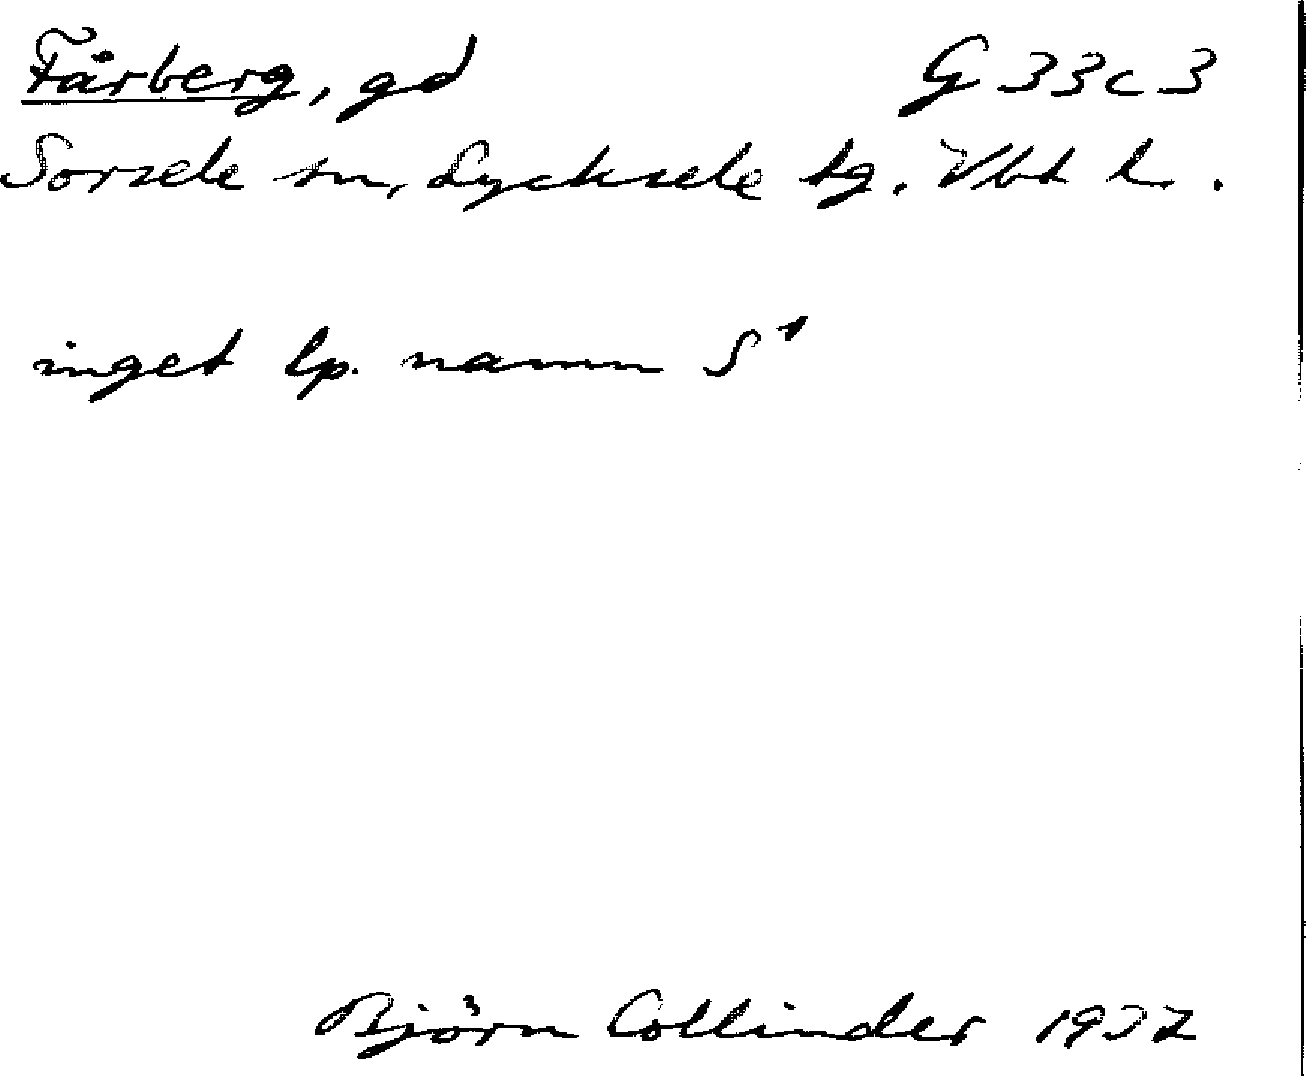 Fårberg, gd G 33 c 3
Sorsele sn, Lycksele tg. Vbt l.
inget lp. namn S¹
Björn Collinder 1937